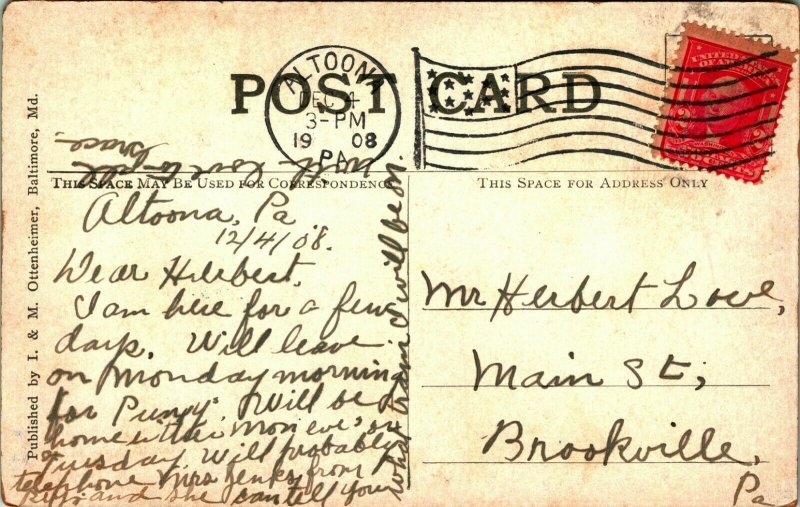 POST CARD
ALTOONA
DEC 4
3-PM
19 08
PA.
UNITED STATES
OF AMERICA
WASHINGTON
2 CENTS 2
THIS SPACE MAY BE USED FOR CORRESPONDENCE
THIS SPACE FOR ADDRESS ONLY
Published by I. & M. Ottenheimer, Baltimore, Md.
Altoona, Pa
12/4/08.
Dear Herbert,
I am here for a few
days. Will leave
on Monday morning
for Punxy. Will be
home either Mon eve, or
Tuesday. Will probably
telephone Mrs Jenks from
and she can tell you
what train I will be on.
With love to all
Grace.
Mr Herbert Lowe,
Main St,
Brookville,
Pa